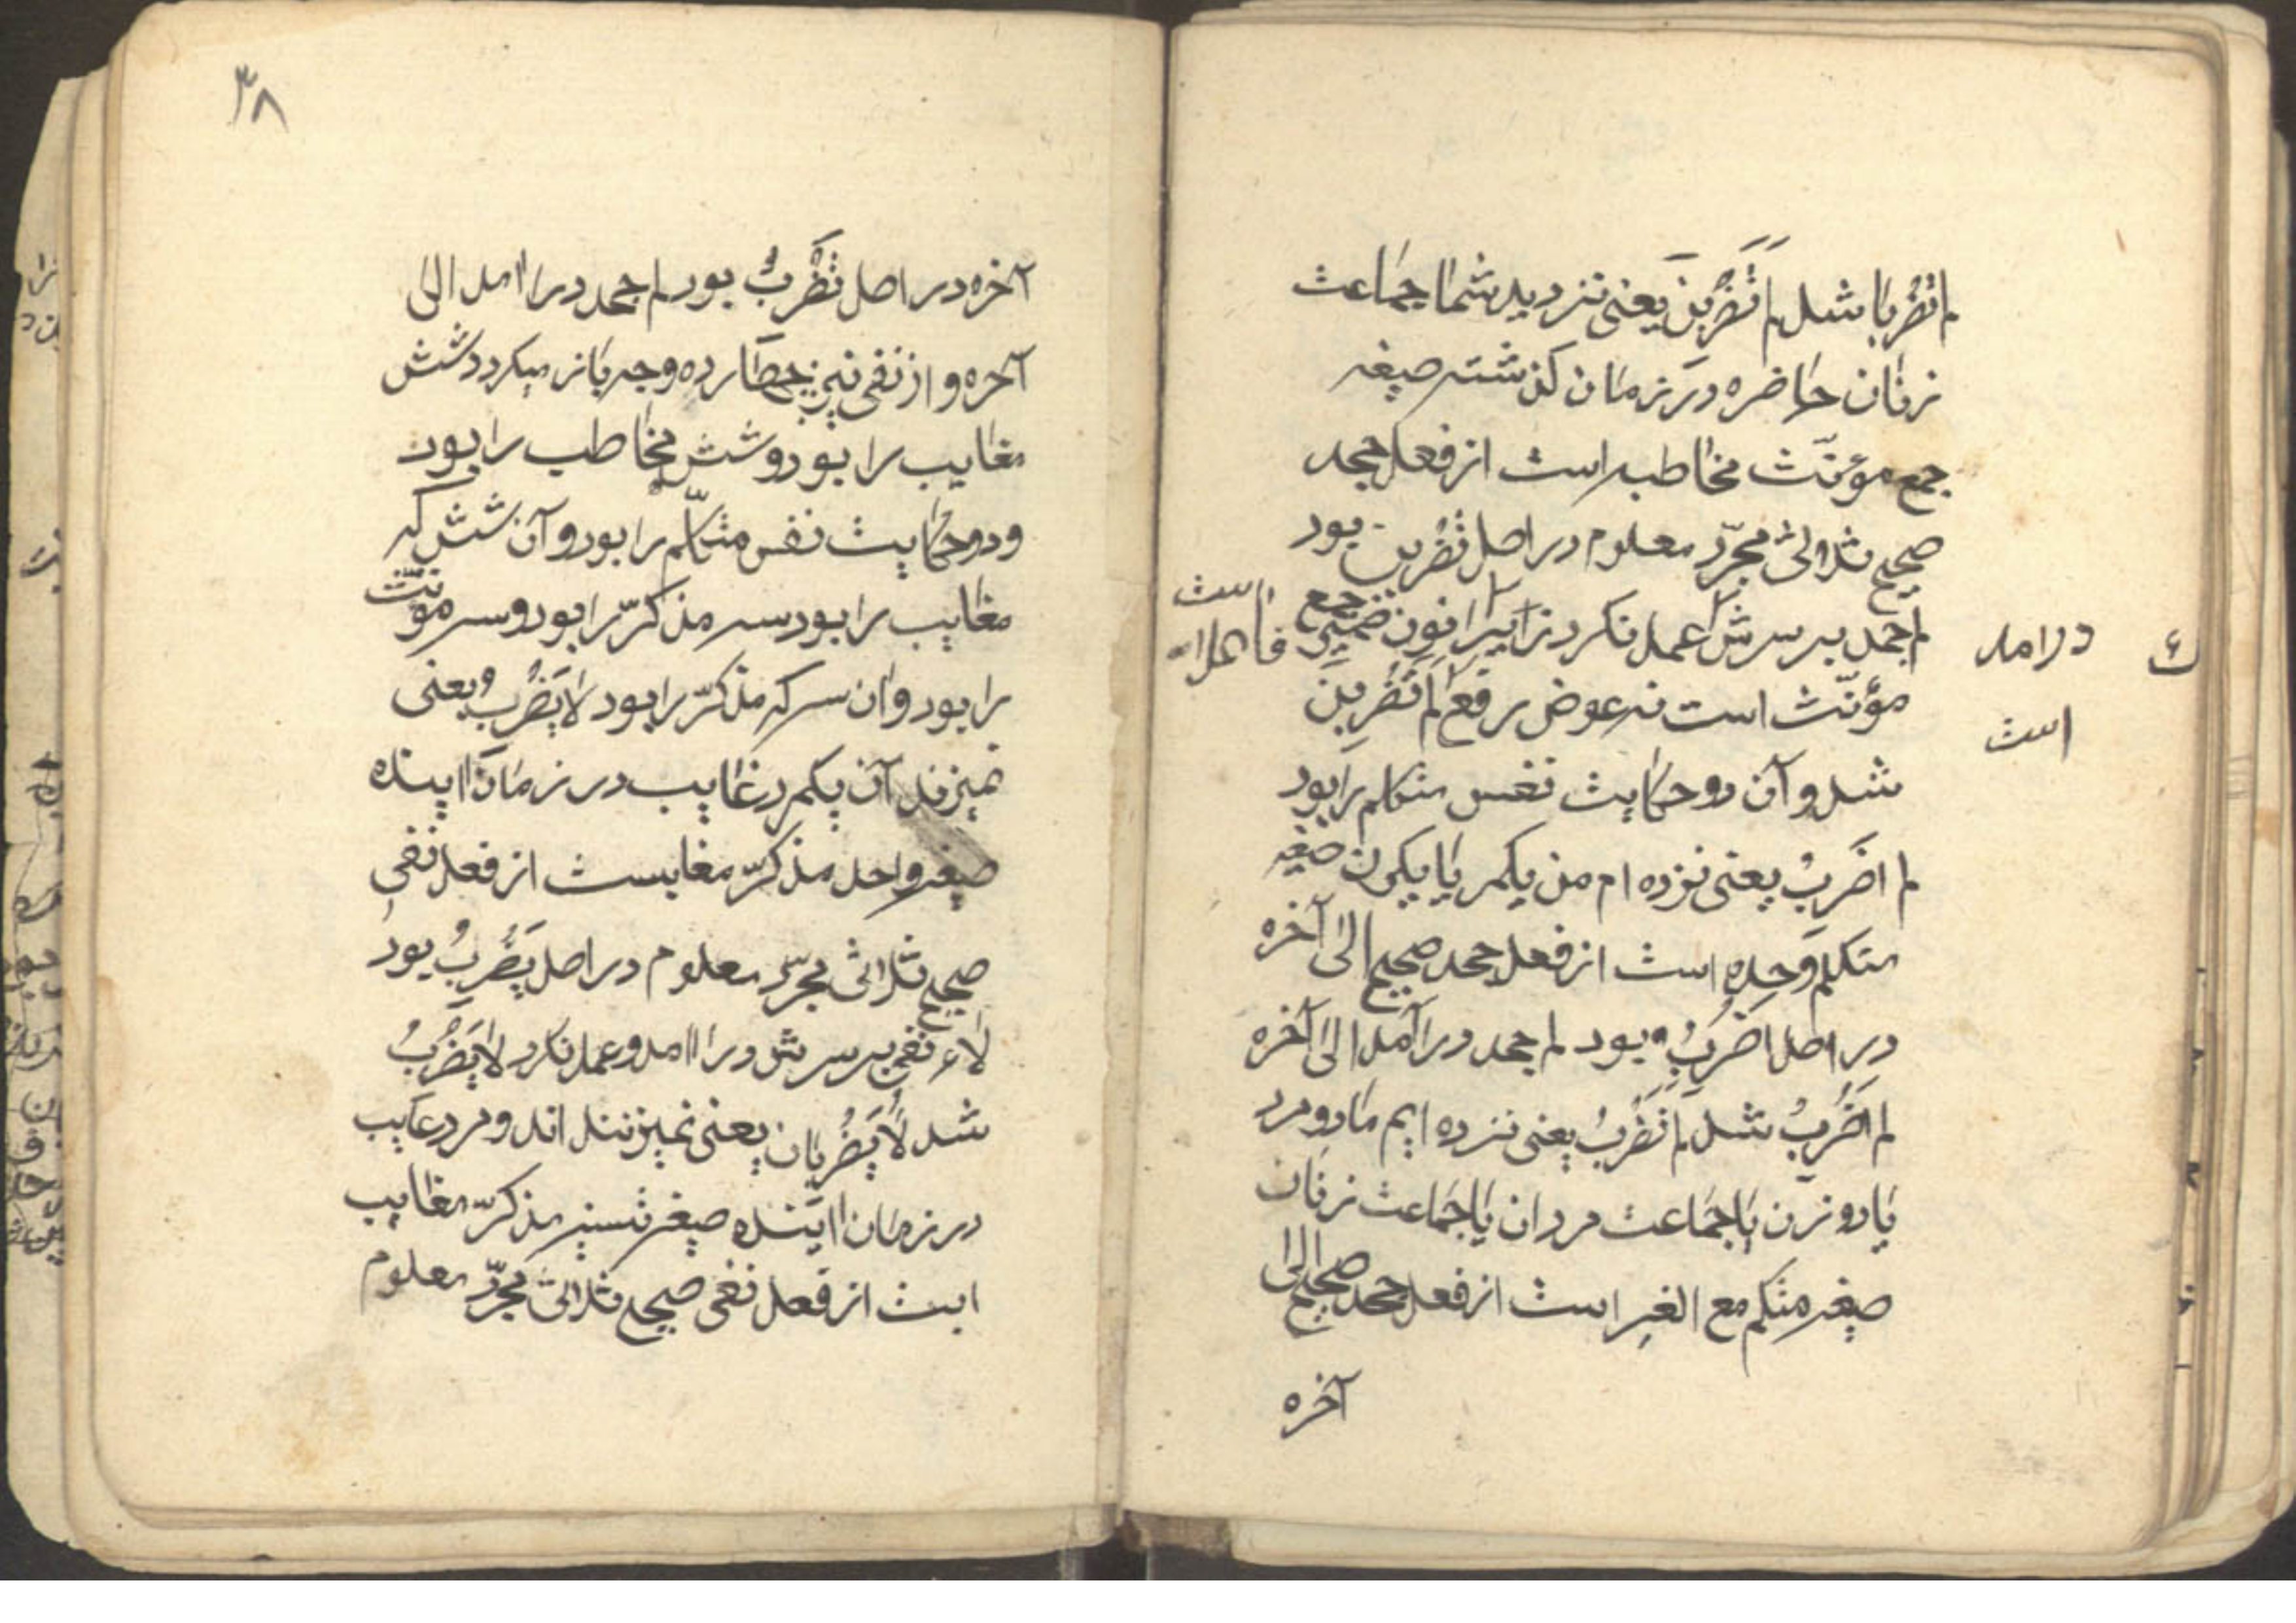 لم تضربا شد لم تضربن یعنی نزدید شما جماعت
زنان حاضره در زمان کذشته صیغه
جمع مؤنّث مخاطبه است از فعل جحد
صحیح ثلاثی مجرّد معلوم در اصل تضربن بود
لم جحد بر سرش عمل نکرد زیرا نون ضمیر جمع
درامد
فاعل است
مؤنّث است نه عوض رفع لم تضربن
است
شد و آن دو حکایت نفس متکلم را بود
لم اضرب یعنی نزده ام من یکمر یا یکزن صیغه
متکلم وحده است از فعل جحد صحیح الی آخره
در اصل اضرب بود لم جحد درآمد الی آخره
لم اضرب شد لم نضرب یعنی نزده ایم ما دو مرد
یا دو زن یا جماعت مردان یا جماعت زنان
صیغه متکلم مع الغیر است از فعل جحد صحیح الی
آخره
۳۸
آخره در اصل نضرب بود لم جحد در اامد الی
آخره و از نفی نیز چهارده وجه باز میکردد شش
مغایب را بود و شش مخاطب را بود
و دو حکایت نفس متکلّم را بود و آن شش که
مغایب را بود سه مذکرّ را بود و سه مونّث
را بود و ان سه که مذکرّ را بود لا یضرب یعنی
نمیزند آن یکمرد غایب در زمان اینده
صیغه واحد مذکرّ مغایبست از فعل نفی
صحیح ثلاثی مجرّد معلوم در اصل یضرب بود
لاء نفی بر سرش در اامد و عمل نکرد لا یضرب
شد لا یضربان یعنی نمیزنند ان دو مرد غایب
در زمان اینده صیغه تثنیه مذکرّ مغایب
است از فعل نفی صحیح ثلاثی مجرّد معلوم